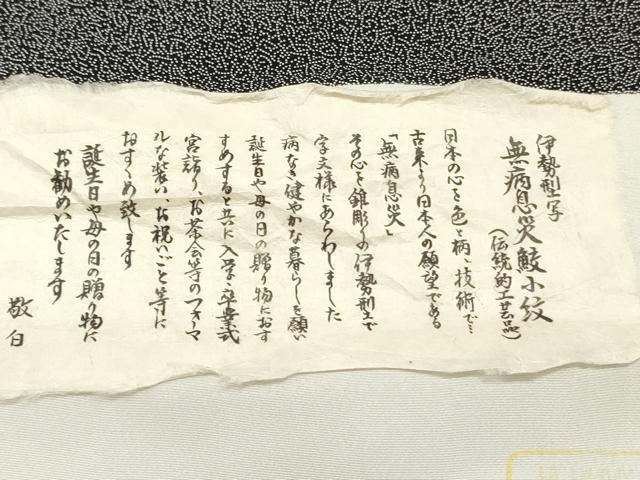 伊勢型写
無病息災鮫小紋
(伝統的工芸品)
日本の心を色と柄、技術で…
古来より日本人の願望である
「無病息災」
その心を錐彫りの伊勢型土で
字文様にあらわしました
病なき健やかな暮らしを願い
誕生日や母の日の贈り物におす
すめすると共に入学・卒業式
宮詣り、お茶会等のフォーマ
ルな装い、お祝いごと等に
おすゝめ致します
誕生日や母の日の贈り物に
お勧めいたします
敬白